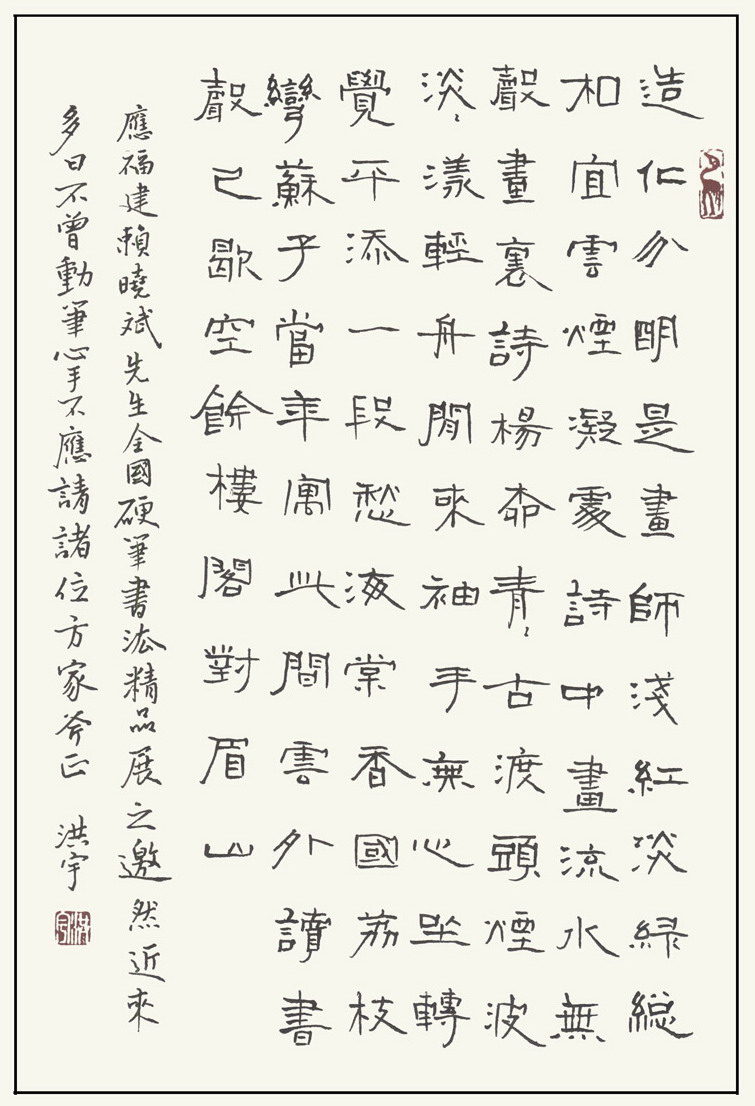 造化分明是畫師淺紅淡綠總
和宜雲煙凝處詩中畫流水無
聲畫裏詩楊柳青〻古渡頭煙波
淡〻漾輕舟閒來袖手無心坐轉
覺平添一段愁海棠香國荔枝
彎蘇子當年寓此間雲外讀書
聲已歇空餘樓閣對眉山
應福建賴曉斌先生全國硬筆書法精品展之邀然近來
多日不曾動筆心手不應請諸位方家斧正 洪宇